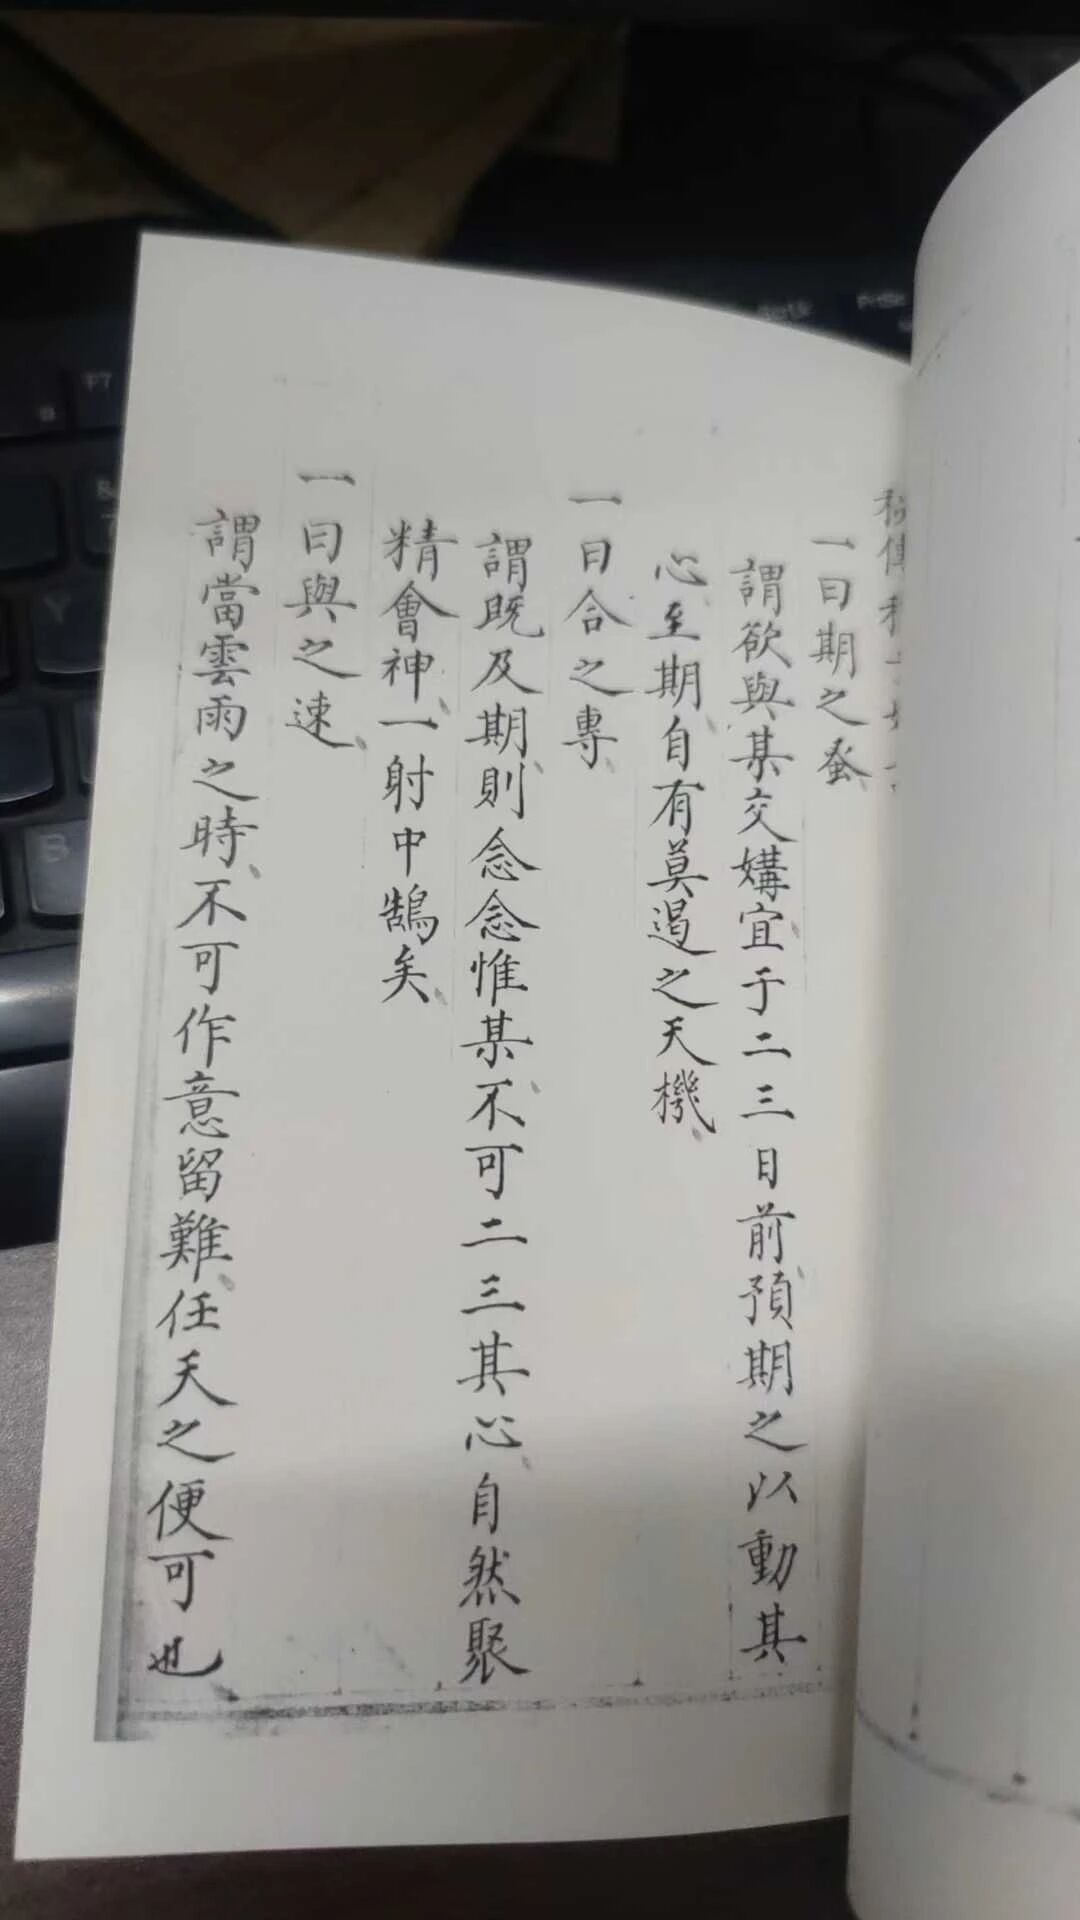 一曰期之蚤
謂欲與某交媾宜于二三日前預期之以動其
心至期自有莫遏之天機
一曰合之專
謂既及期則念念惟某不可二三其心自然聚
精會神一射中鵠矣
一曰與之速
謂當雲雨之時不可作意留難任天之便可也